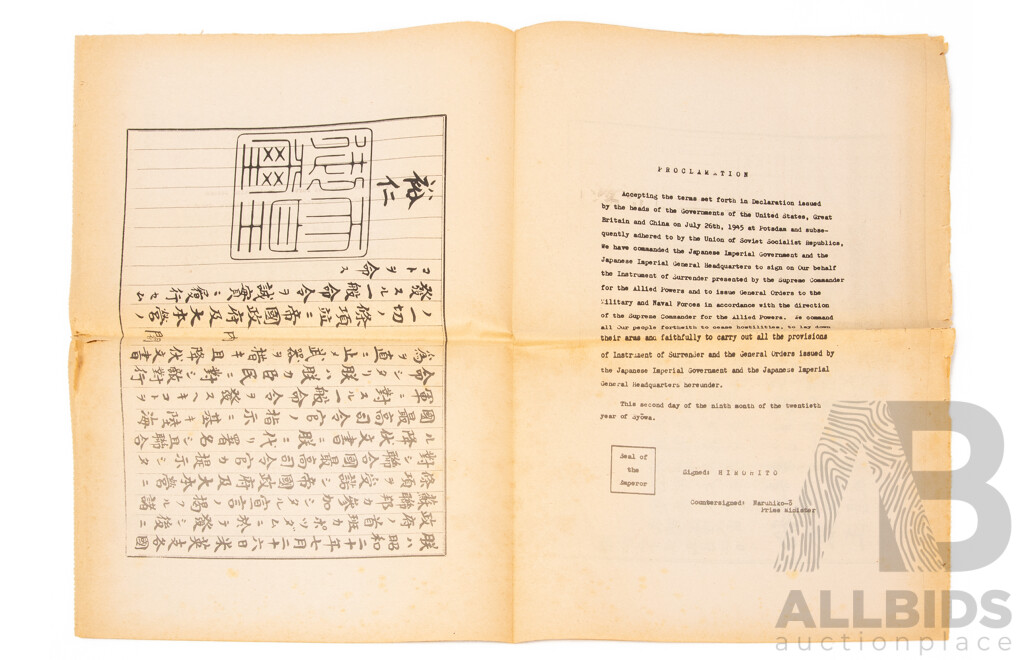 朕ハ昭和二十年七月二十六日米英支各國
政府ノ首班カポツダムニ於テ發シ後ニ
蘇聯邦カ參加シタル宣言ノ掲クル諸
條項ヲ受諾シ帝國政府及大本營ニ
對シ聯合國最高司令官カ提示シタ
ル降伏文書ニ朕ニ代リ署名シ且聯合
國最高司令官ノ指示ニ基キ陸海
軍ニ對スル一般命令ヲ發スヘキコトヲ
命シタリ朕ハ朕カ臣民ニ對シ敵對行
爲ヲ直ニ止メ武器ヲ措キ且降伏文書
内閣
ノ一切ノ條項竝ニ帝國政府及大本營ノ
發スル一般命令ヲ誠實ニ履行セム
コトヲ命ス
裕仁
天皇御璽
PROCLAMATION
Accepting the terms set forth in Declaration issued
by the heads of the Governments of the United States, Great
Britain and China on July 26th, 1945 at Potsdam and subse-
quently adhered to by the Union of Soviet Socialist Republics,
We have commanded the Japanese Imperial Government and the
Japanese Imperial General Headquarters to sign on Our behalf
the Instrument of Surrender presented by the Supreme Commander
for the Allied Powers and to issue General Orders to the
Military and Naval Forces in accordance with the direction
of the Supreme Commander for the Allied Powers. We command
all Our people forthwith to cease hostilities, to lay down
their arms and faithfully to carry out all the provisions
of Instrument of Surrender and the General Orders issued by
the Japanese Imperial Government and the Japanese Imperial
General Headquarters hereunder.
This second day of the ninth month of the twentieth
year of Syōwa.
Seal of
the
Emperor
Signed: HIROHITO
Countersigned: Naruhiko-ō
Prime Minister
AB
ALLBIDS
auctionplace